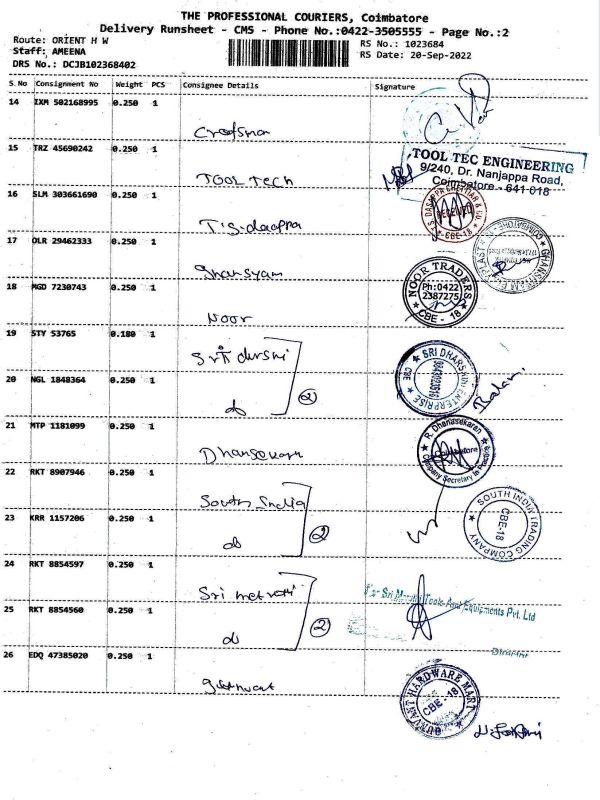 THE PROFESSIONAL COURIERS, Coimbatore
Delivery Runsheet - CMS - Phone No.:0422-3505555 - Page No.:2
Route: ORIENT H W
Staff: AMEENA
DRS No.: DCJB102368402
RS No.: 1023684
RS Date: 20-Sep-2022
S.No Consignment No Weight PCS Consignee Details Signature
14 IXM 502168995 0.250 1
15 TRZ 45690242 0.250 1
TOOL TECH
TOOL TEC ENGINEERING
9/240, Dr. Nanjappa Road,
Coimbatore - 641 018
16 SLM 303661690 0.250 1
RECEIVED
CBE-18
17 OLR 29462333 0.250 1
Ghansyam
18 MGD 7230743 0.250 1
Noor
NOOR TRADERS
Ph:0422
2387275
CBE - 18
19 STY 53765 0.180 1
20 NGL 1848364 0.250 1
do
2
SRI DHARSHINI ENTERPRISE
CBE
21 MTP 1181099 0.250 1
R. Dhanasekaran
Coimbatore
Company Secretary in Practice
22 RKT 8907946 0.250 1
South India
23 KRR 1157206 0.250 1
do
2
SOUTH INDIA TRADING COMPANY
CBE-18
24 RKT 8854597 0.250 1
Sri
25 RKT 8854560 0.250 1
do
2
Tools And Equipments Pvt. Ltd
Director
26 EDQ 47385020 0.250 1
GUNVANT HARDWARE MART
CBE - 18